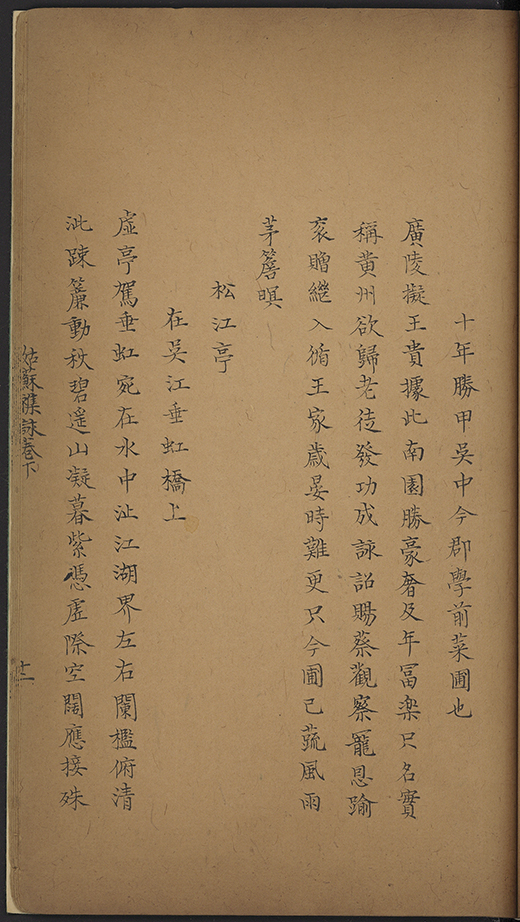 十年勝甲吳中今郡學前菜圃也
廣陵擬王貴據此南園勝豪奢及年冨樂只名實
稱黄州欲歸老徒發功成詠詔賜蔡觀察寵恩踰
衮贈繼入循王家歳晏時難更只今圃已蔬風雨
茅簷暝
松江亭
在吳江垂虹橋上
虛亭駕垂虹宛在水中沚江湖界左右闌檻俯清
泚踈簾動秋碧遥山凝暮紫憑虛際空闊應接殊
姑蘇雜詠卷下
十二